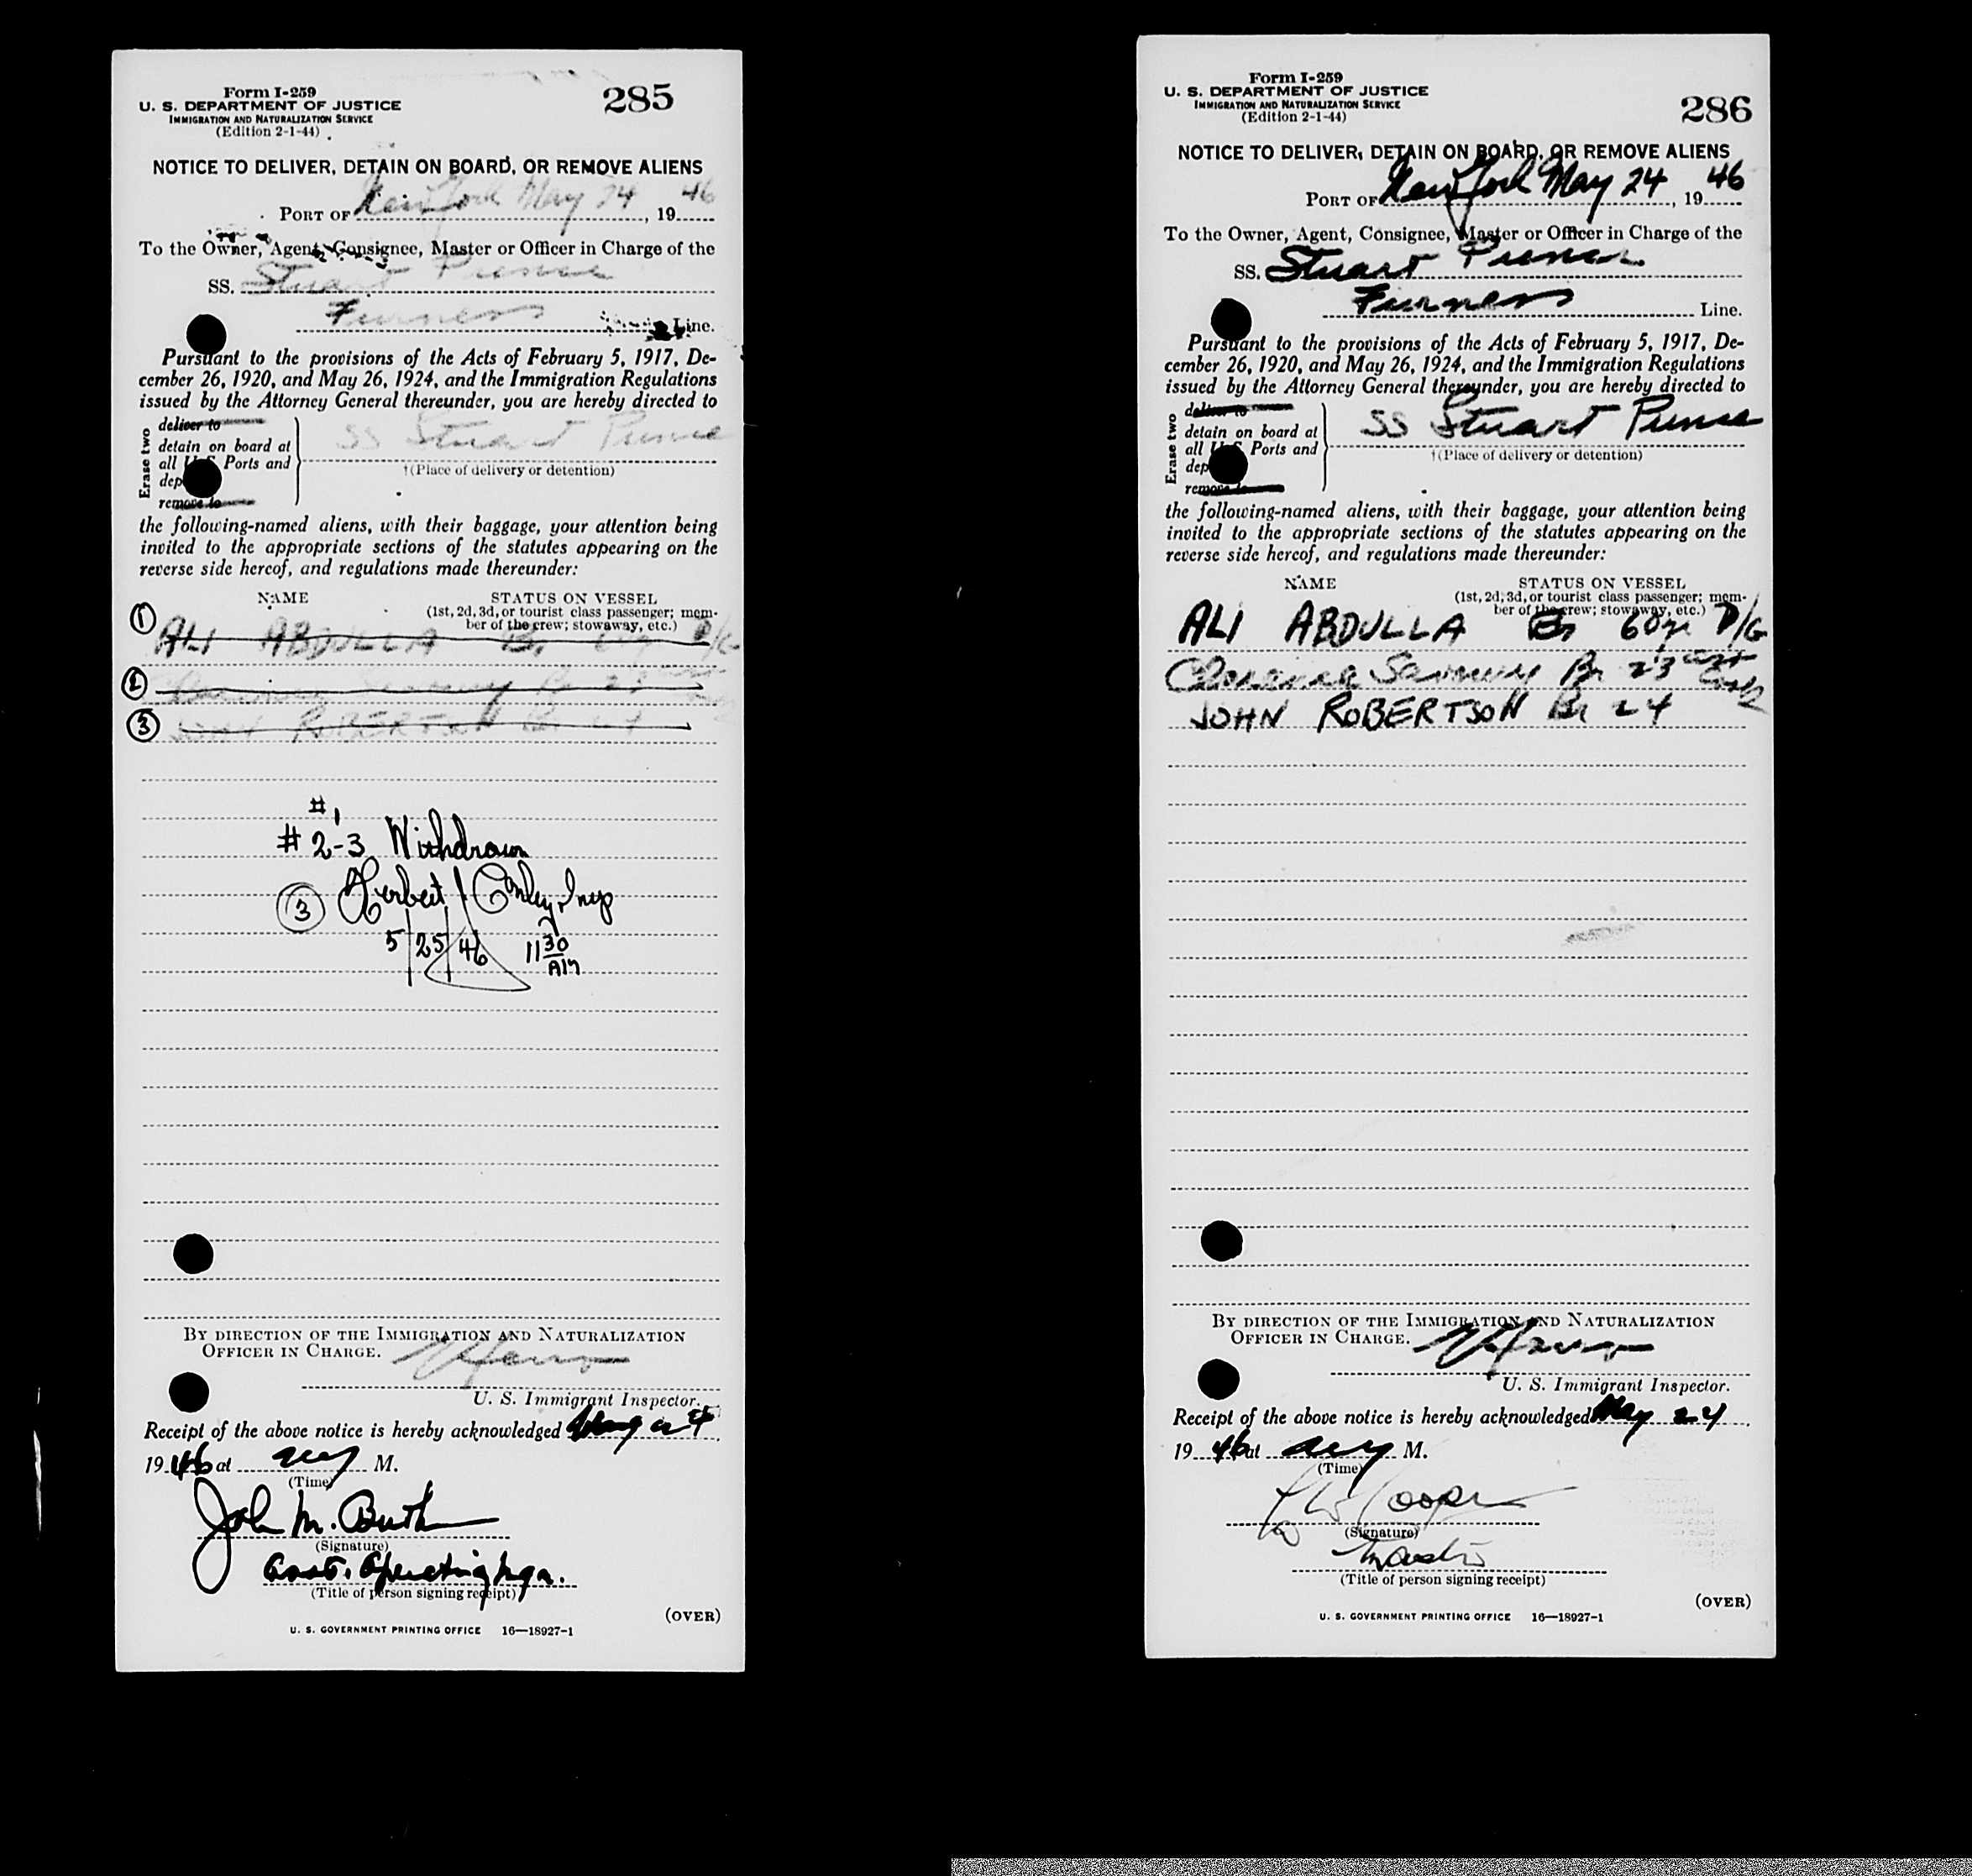 Form I-259
U. S. DEPARTMENT OF JUSTICE
IMMIGRATION AND NATURALIZATION SERVICE
(Edition 2-1-44)
285
NOTICE TO DELIVER, DETAIN ON BOARD, OR REMOVE ALIENS
PORT OF New York May 24, 19 46
To the Owner, Agent, Consignee, Master or Officer in Charge of the
SS. Stuart
Furness Line.
Pursuant to the provisions of the Acts of February 5, 1917, De-
cember 26, 1920, and May 26, 1924, and the Immigration Regulations
issued by the Attorney General thereunder, you are hereby directed to
Erase two
deliver to
detain on board at
all U.S. Ports and
dep
remove to
SS Stuart
†(Place of delivery or detention)
the following-named aliens, with their baggage, your attention being
invited to the appropriate sections of the statutes appearing on the
reverse side hereof, and regulations made thereunder:
NAME
STATUS ON VESSEL
(1st, 2d, 3d, or tourist class passenger; mem-
ber of the crew; stowaway, etc.)
1 ALI ABDULLA Br P/G
2
3 ROBERTSON Br 24
#1
#2-3 Withdrawn
3 Herbert J Insp
5/25/46 11 30 AM
BY DIRECTION OF THE IMMIGRATION AND NATURALIZATION
OFFICER IN CHARGE.
U. S. Immigrant Inspector.
Receipt of the above notice is hereby acknowledged May 24,
19 46 at M.
(Time)
John M.
(Signature)
Asst. Operating Mgr.
(Title of person signing receipt)
(OVER)
U. S. GOVERNMENT PRINTING OFFICE 16—18927-1
Form I-259
U. S. DEPARTMENT OF JUSTICE
IMMIGRATION AND NATURALIZATION SERVICE
(Edition 2-1-44)
286
NOTICE TO DELIVER, DETAIN ON BOARD, OR REMOVE ALIENS
PORT OF New York May 24, 19 46
To the Owner, Agent, Consignee, Master or Officer in Charge of the
SS. Stuart
Furness Line.
Pursuant to the provisions of the Acts of February 5, 1917, De-
cember 26, 1920, and May 26, 1924, and the Immigration Regulations
issued by the Attorney General thereunder, you are hereby directed to
Erase two
deliver to
detain on board at
all U.S. Ports and
dep
remove to
SS Stuart
†(Place of delivery or detention)
the following-named aliens, with their baggage, your attention being
invited to the appropriate sections of the statutes appearing on the
reverse side hereof, and regulations made thereunder:
NAME
STATUS ON VESSEL
(1st, 2d, 3d, or tourist class passenger; mem-
ber of the crew; stowaway, etc.)
ALI ABDULLA Br 60 yr P/G
Clarence Br 23 asst Cook
JOHN ROBERTSON Br 24
BY DIRECTION OF THE IMMIGRATION AND NATURALIZATION
OFFICER IN CHARGE.
U. S. Immigrant Inspector.
Receipt of the above notice is hereby acknowledged May 24,
19 46 at M.
(Time)
Cooper
(Signature)
Master
(Title of person signing receipt)
(OVER)
U. S. GOVERNMENT PRINTING OFFICE 16—18927-1